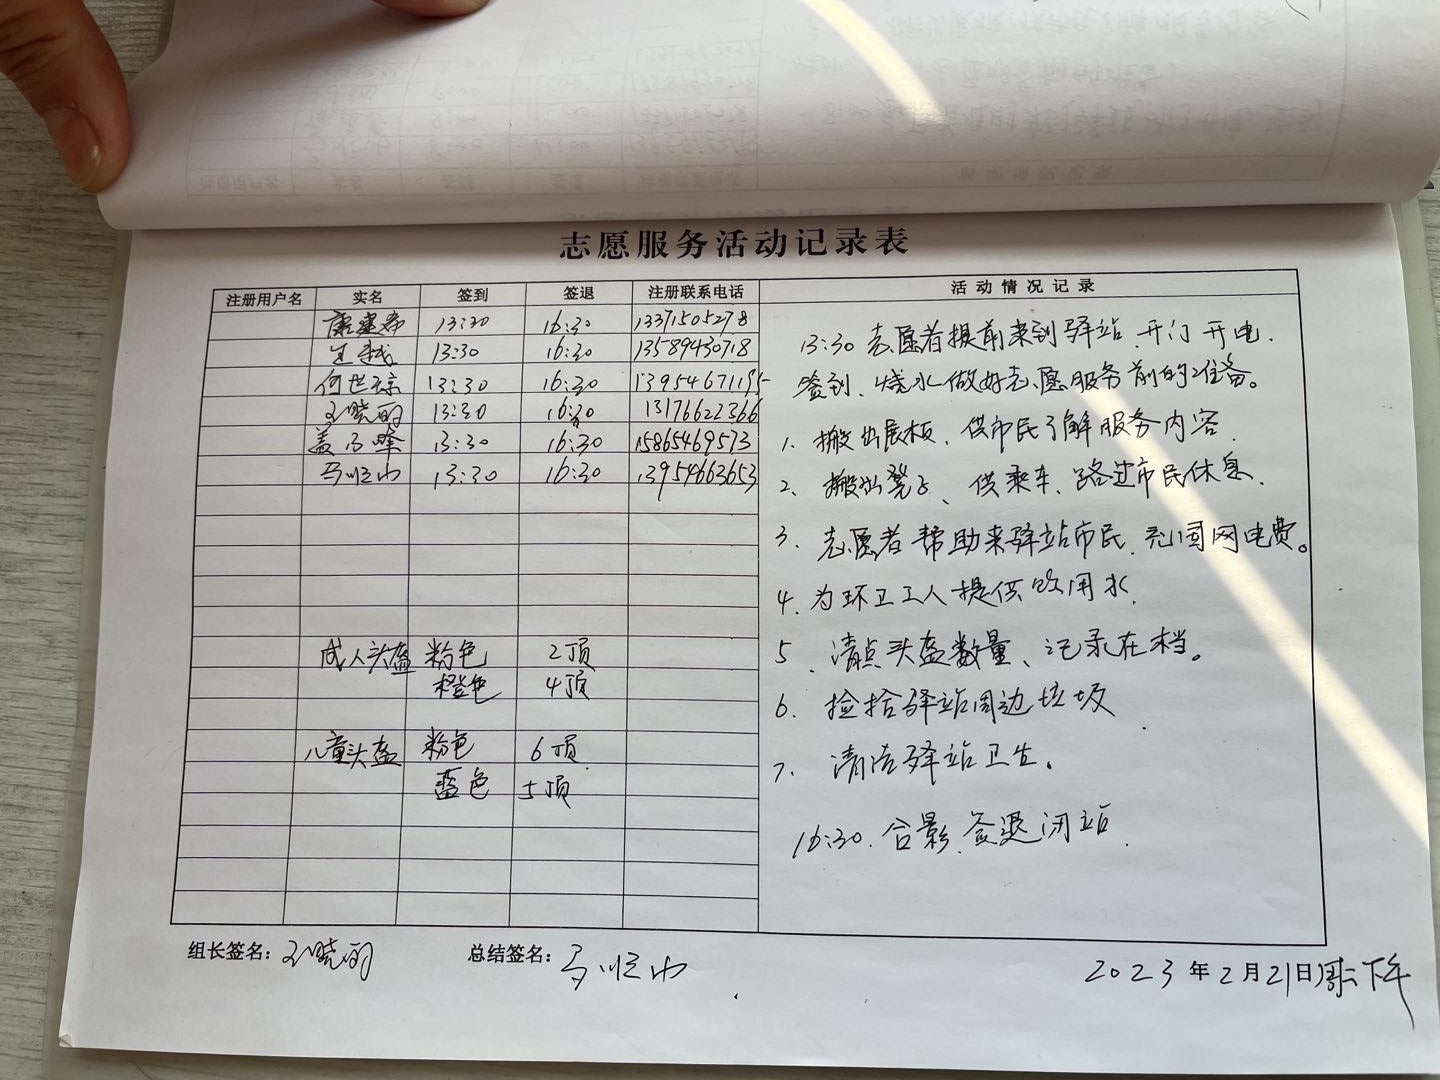 志愿服务活动记录表
注册用户名 实名 签到 签退 注册联系电话 活动情况记录
13:30 16:30 13371505278
13:30 16:30 13589430718
何世 13:30 16:30 13954671195
王晓明 13:30 16:30 13176622366
盖 13:30 16:30 15865469573
马 13:30 16:30 13954663653
成人头盔 粉色 2顶
橙色 4顶
儿童头盔 粉色 6顶
蓝色 5顶
13:30 志愿者提前来到驿站、开门开电.
签到、烧水做好志愿服务前的准备。
1. 搬出展板、供市民了解服务内容.
2. 搬出凳子、供乘车、路过市民休息.
3. 志愿者帮助来驿站市民、充国网电费。
4. 为环卫工人提供饮用水.
5、清点头盔数量、记录在档。
6. 捡拾驿站周边垃圾
7. 清洁驿站卫生。
16:30. 合影、签退闭站.
组长签名：王晓明 总结签名：马
2023年2月21日周二下午